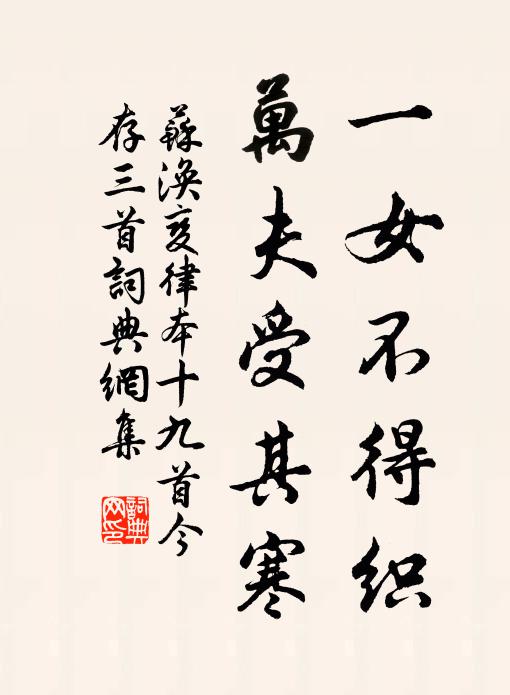 一女不得织
萬夫受其寒
蘇渙变律本十九首今
存三首詞典網集
詞典网印